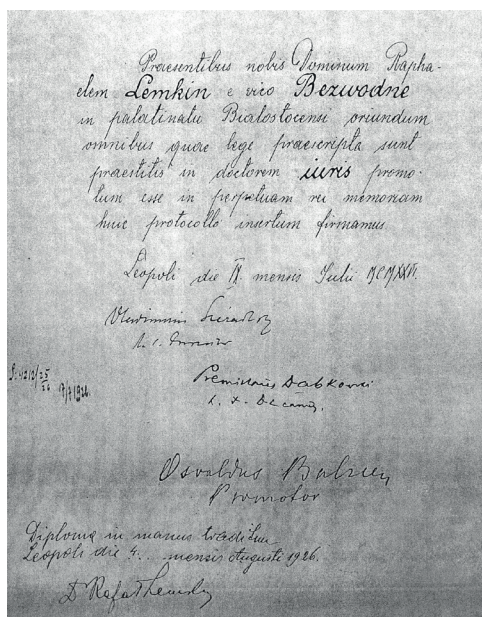 Praesentibus nobis Dominum Rapha-
elem Lemkin e vico Bezwodne
in palatinatu Bialostocensi oriundum
omnibus quae lege praescripta sunt
praestitis in doctorem iuris promo-
tum esse in perpetuam rei memoriam
huic protocollo insertum firmamus.
Leopoli die IX. mensis Julii MCMXXVI.
Vladimirus Sieradzki
Premislaus Dąbkowski
Osvaldus Balzer
Promotor
Diploma in manus traditum
Leopoli die 4. mensis Augusti 1926.
D Rafał Lemkin